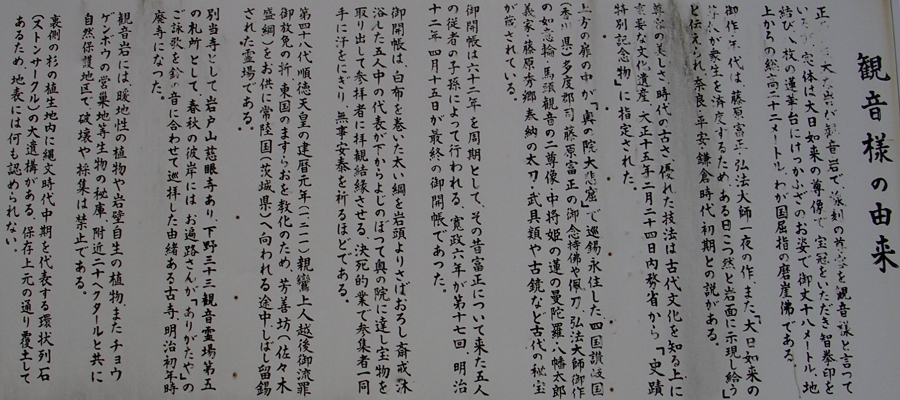 観音様の由来
正
大
が観音岩で、
を観音様と言って
い
実体は大日如来の尊像で、宝冠をいただき智拳印を
結び、八枚の蓮華台にけっかふざのお姿で御丈十八メートル、地
上からの総高二十二メートル、わが国屈指の磨崖佛である。
御作年代は藤原富正、弘法大師一夜の作、また「大日如来の
が衆生を済度するため、ある日こつ然と岩面に示現し給う」
と伝えられ、奈良・平安・鎌倉時代初期との説がある。
尊容の美しさ、時代の古さ、優れた技法は古代文化を知る上に
重要な文化遺産、大正十五年二月二十四日内務省から「史蹟
特別記念物」に指定された。
上方の扉の中が「奥の院大悲窟」で巡錫永住した四国讃岐国
(香川県)多度郡司藤原富正の御念持佛や佩刀、弘法大師御作
の如意輪、馬頭観音の二尊像、中将姫の蓮の曼陀羅、幡太郎
義家、藤原秀郷奉納の太刀、武具類や古鏡など古代の秘宝
が蔵されている。
御開帳は六十二年を周期として、その昔富正について来た五人
の従者の子孫によって行われる。寛政六年が第十七回、明治
十二年四月十五日が最終の御開帳であった。
御開帳は、白布を巻いた太い綱を岩頭よりさげおろし、斎戒沐
浴した五人中の代表が下からよじのぼって奥の院に達し宝物を
取り出して参拝者に拝観結縁させる。決死的業で参集者一同
手に汗をにぎり、無事安泰を祈るほどである。
第四十八代順徳天皇の建暦元年(一二一一)親鸞上人越後御流罪
御放免の折、東国のますらおを教化のため、芳善坊(佐々木
盛綱)をお供に常陸国(茨城県)へ向われる途中、しばし留錫
された霊場である。
別当寺として岩戸山慈眼寺あり、下野三十三観音霊場第五
の札所として、春秋の彼岸にはお遍路さんが「ありがたや」の
ご詠歌を鈴の音に合わせて巡拝した由緒ある古寺、明治初年時
廃寺になった。
観音岩には、暖地性の植物や岩壁自生の植物、またチョウ
ゲンボウの営巣地等生物の秘庫、附近二十ヘクタールと共に
自然保護地区で破壊や採集は禁止である。
裏側の杉の植生地内に縄文時代中期を代表する環状列石
(ストンサークル)の大遺構がある。保存上元の通り覆土して
あるため、地表には何も認められない。